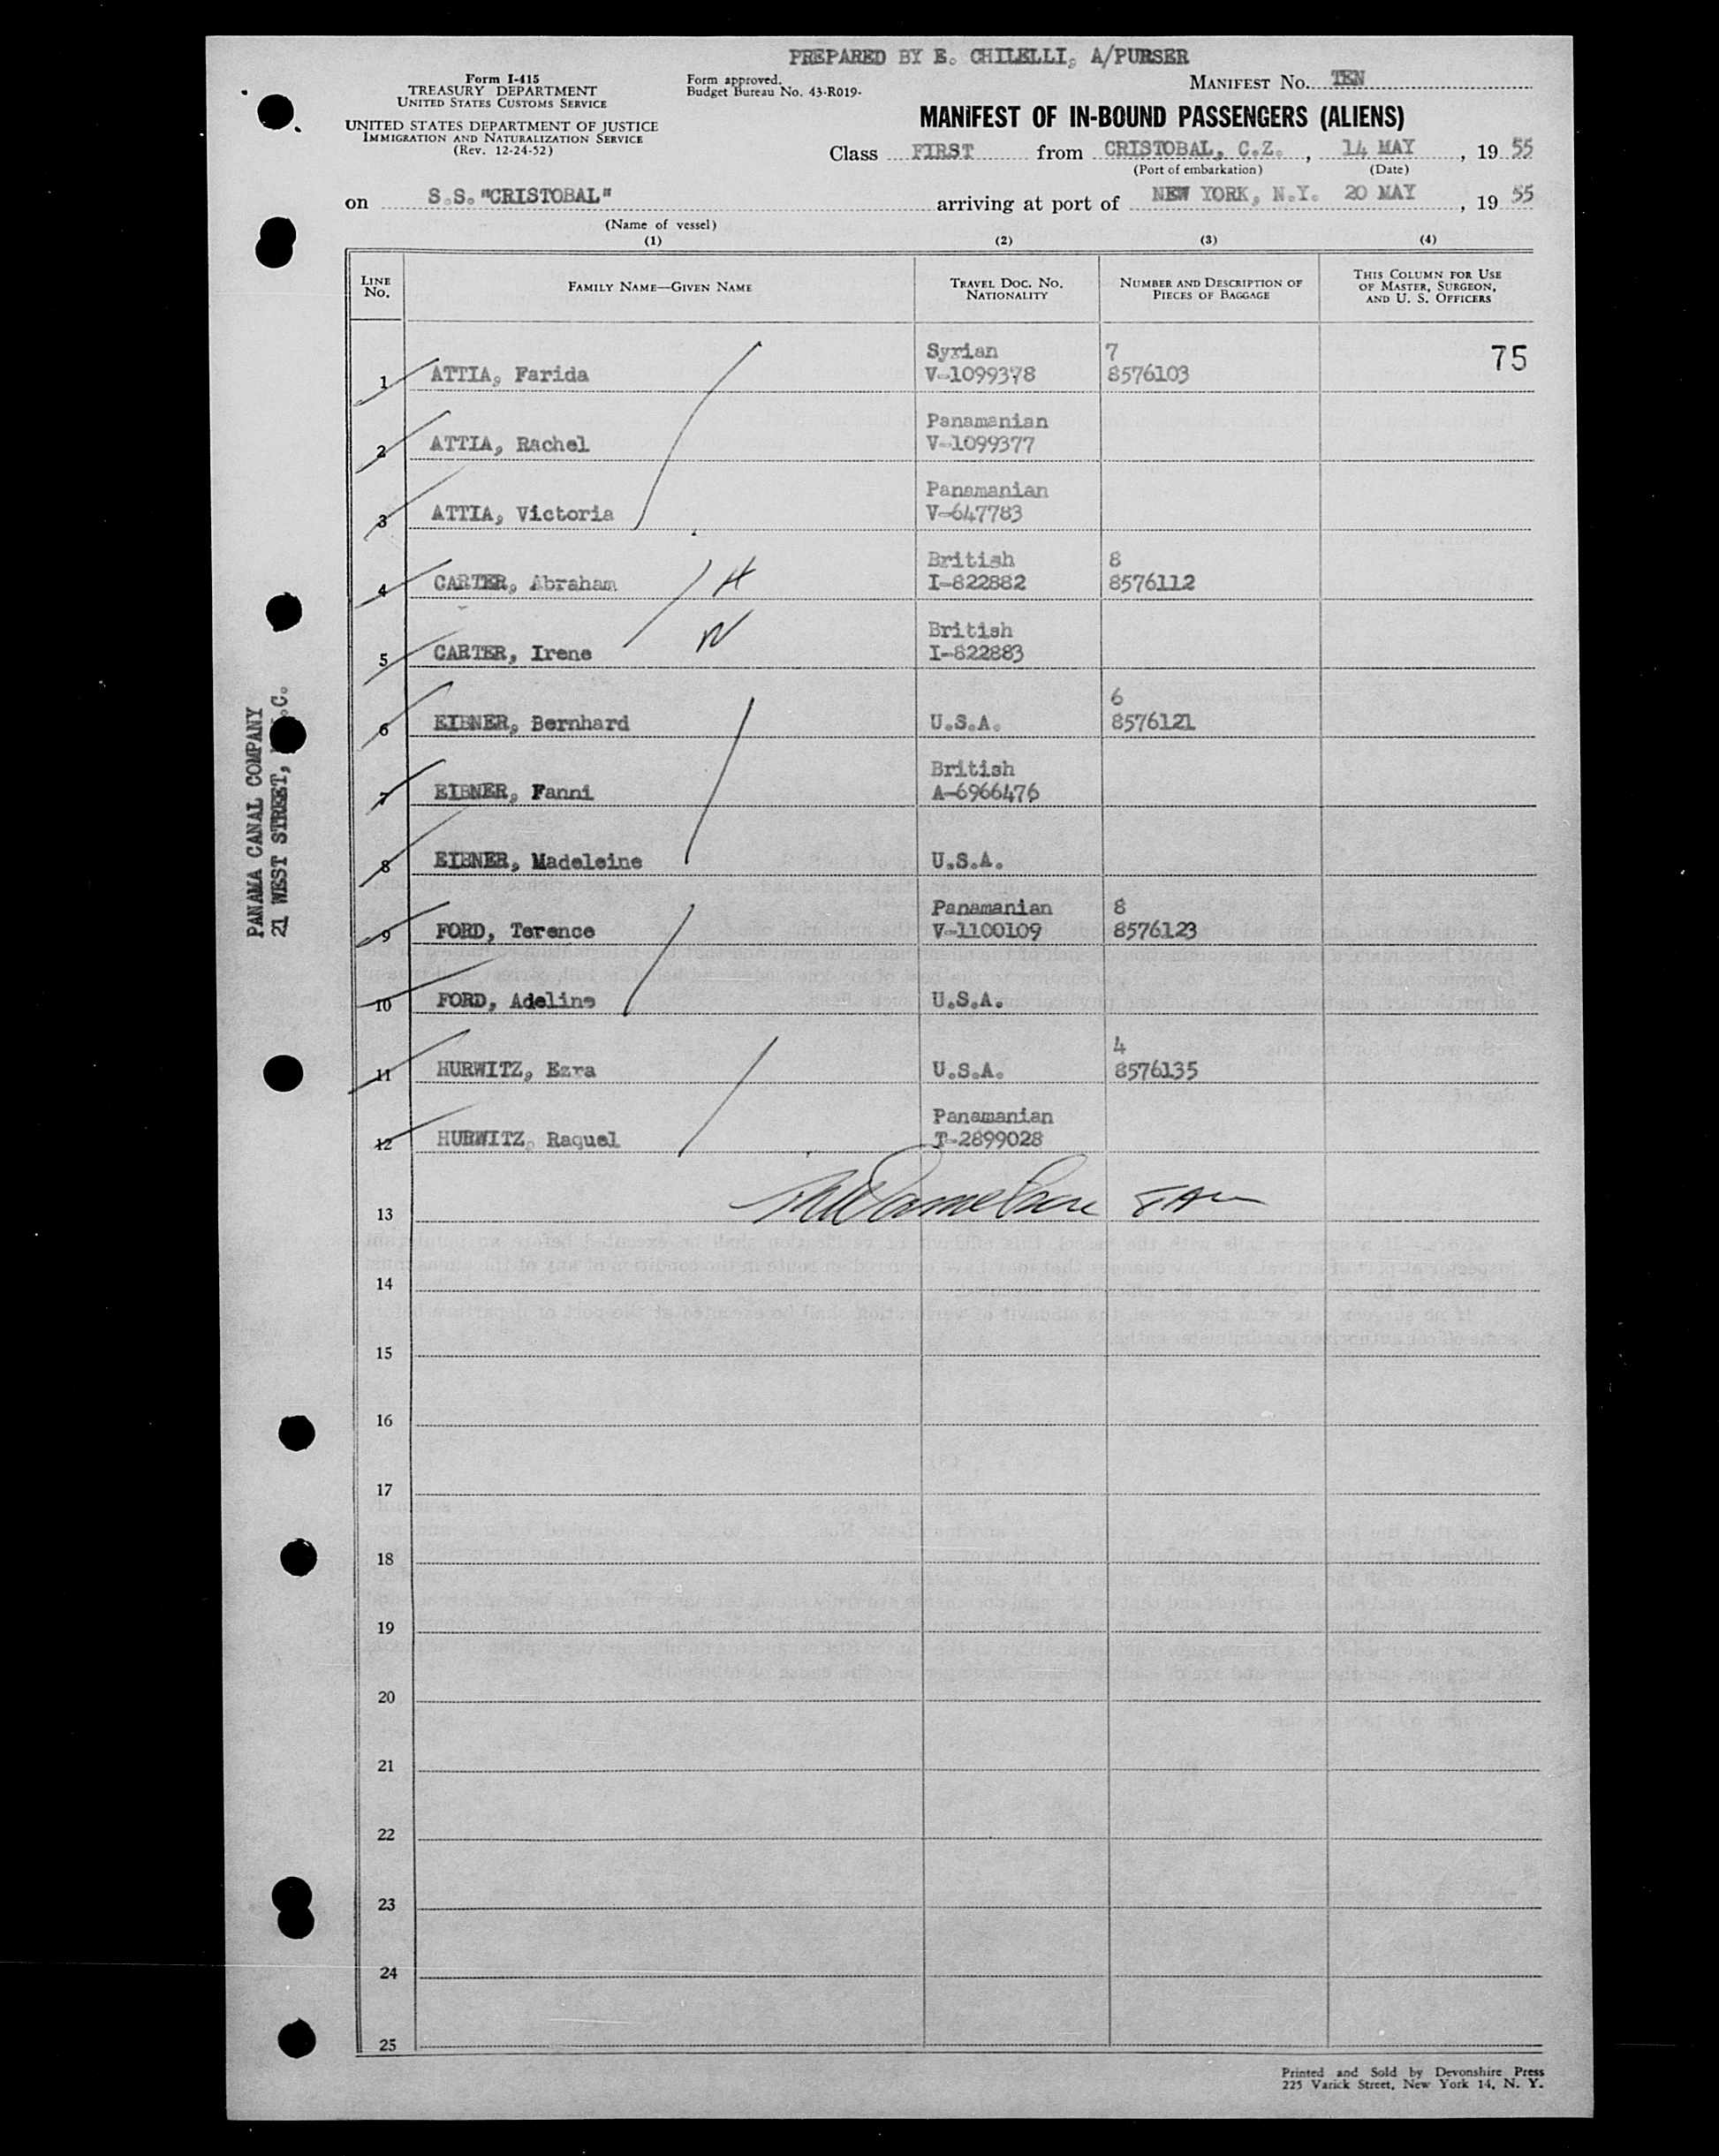 PREPARED BY E. CHILELLI, A/PURSER
Form I-415
TREASURY DEPARTMENT
UNITED STATES CUSTOMS SERVICE
UNITED STATES DEPARTMENT OF JUSTICE
IMMIGRATION AND NATURALIZATION SERVICE
(Rev. 12-24-52)
Form approved.
Budget Bureau No. 43-R019-
MANIFEST No. TEN
MANIFEST OF IN-BOUND PASSENGERS (ALIENS)
Class FIRST from CRISTOBAL, C.Z., 14 MAY, 19 55
(Port of embarkation) (Date)
on S.S. "CRISTOBAL" arriving at port of NEW YORK, N.Y. 20 MAY, 19 55
(Name of vessel)
(1) (2) (3) (4)
LINE No. FAMILY NAME—GIVEN NAME TRAVEL DOC. No. NATIONALITY NUMBER AND DESCRIPTION OF PIECES OF BAGGAGE THIS COLUMN FOR USE OF MASTER, SURGEON, AND U. S. OFFICERS
Syrian 7 75
1 ATTIA, Farida V-1099378 8576103
Panamanian
2 ATTIA, Rachel V-1099377
Panamanian
3 ATTIA, Victoria V-647783
British 8
4 CARTER, Abraham H I-822882 8576112
British
5 CARTER, Irene N I-822883
6
6 EIBNER, Bernhard U.S.A. 8576121
British
7 EIBNER, Fanni A-6966476
8 EIBNER, Madeleine U.S.A.
Panamanian 8
9 FORD, Terence V-1100109 8576123
10 FORD, Adeline U.S.A.
4
11 HURWITZ, Ezra U.S.A. 8576135
Panamanian
12 HURWITZ, Raquel T-2899028
13
14
15
16
17
18
19
20
21
22
23
24
25
PANAMA CANAL COMPANY
21 WEST STREET,
Printed and Sold by Devonshire Press
225 Varick Street, New York 14, N. Y.